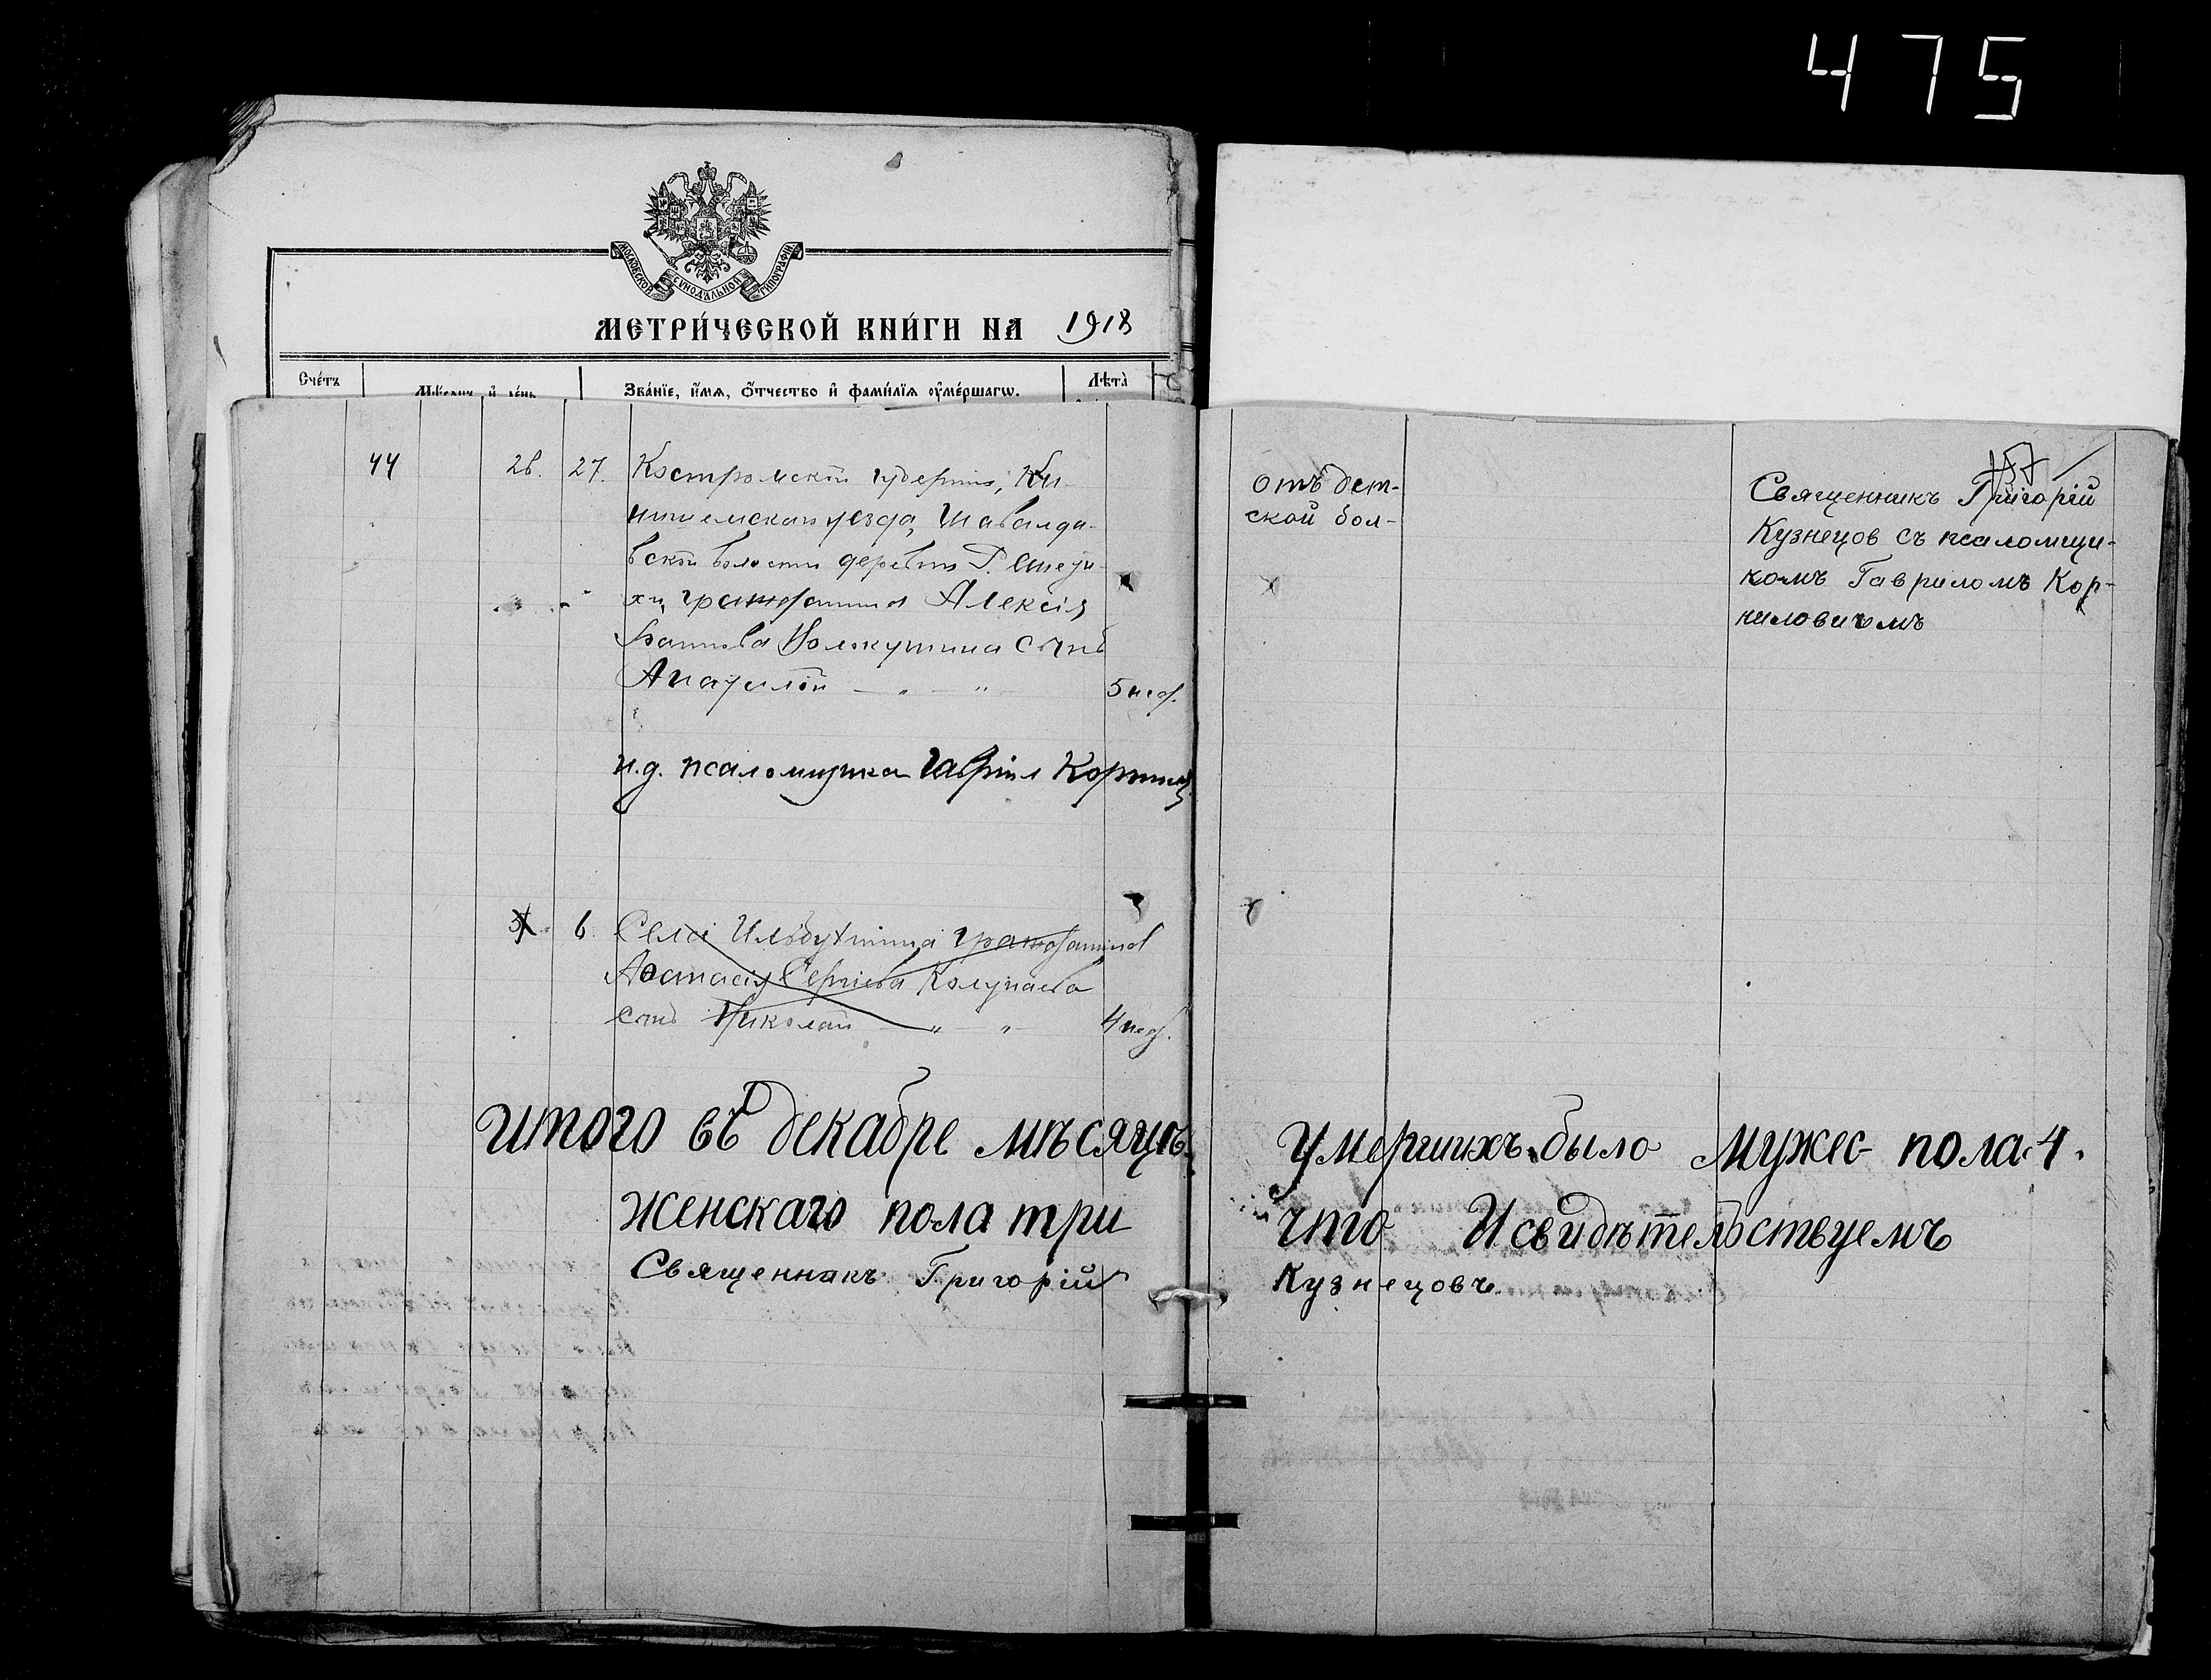 475
МОСКОВСКОЙ СѴНОДАЛЬНОЙ ТИПОГРАФІИ
МЕТРИ́ЧЕСКОЙ КНИ́ГИ НА 1918
Сче́тъ
Мѣ́сяцъ и҆ де́нь
Зва́нїе, и҆́мѧ, ѻ҆́тчество и҆ фами́лїѧ ᲂу҆ме́ршагѡ.
Лѣта̀
44 26. 27. Костромской губерніи, Ки-
нешемскаго уезда, Шавалда-
вской волости деревни Решеди-
хи, гражданина Алексія
Іоаннова Волжутина сынъ
Анатолій — „ — „ 5 нед.
отъ дет-
ской бол-
157
Священникъ Григорій
Кузнецов съ псаломщи-
комъ Гавриломъ Кор-
ниловичмъ
и.д. псаломщика Гавріил Корнил
6. Села гражданина
Аѳанасія Сергіева Колупаева
сынъ Николай — „ — „ 4 нед.
Итого въ декабре мѣсяцѣ умершихъ было мужес- пола 4.
женскаго пола три что И свидѣтельствуемъ
Священникъ Григорій Кузнецовъ.